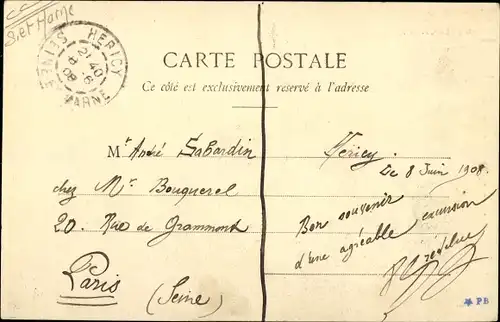 Set Marne
HERICY
8 - 6
08
SEINE ET MARNE
CARTE POSTALE
Ce côté est exclusivement réservé à l'adresse
Mr André Sabardin
chez Mr Bouquerel
20. Rue de Grammont
Paris
(Seine)
Hericy.
Le 8 Juin 1908.
Bon souvenir
d'une agréable excursion
PB